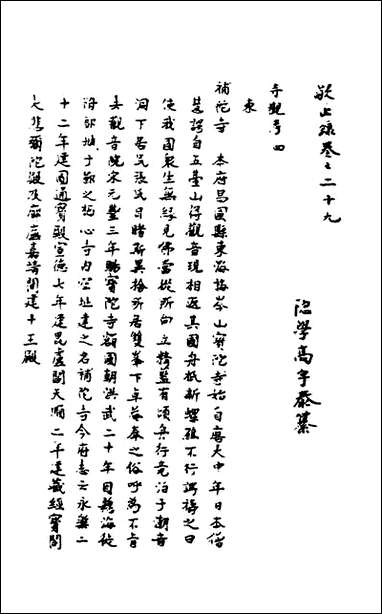 敬止录卷之二十九
隐学高宇泰纂
寺觀考四
東
補陀寺 本府昌國縣東海梅岑山寳陀寺始自唐大中年日本僧
慧諤自五臺山得觀音現相返其國舟抵新螺礁不行諤禱之曰
使我國衆生無緣見佛當從所向立精藍有頃舟行竟泊于潮音
洞下居民張氏目睹所異捨所居雙峯下卓菴奉之俗呼爲不肯
去觀音院宋元豐三年賜寳陀寺額國朝洪武二十年因艱海徙
府郭城于郡之栴心寺内空址建之名補陀寺今府志云永樂二
十二年建圓通寳殿宣德七年建毘盧閣天順二年建藏經寳閣
大悲彌陀殿及廊廡嘉靖間建十王殿